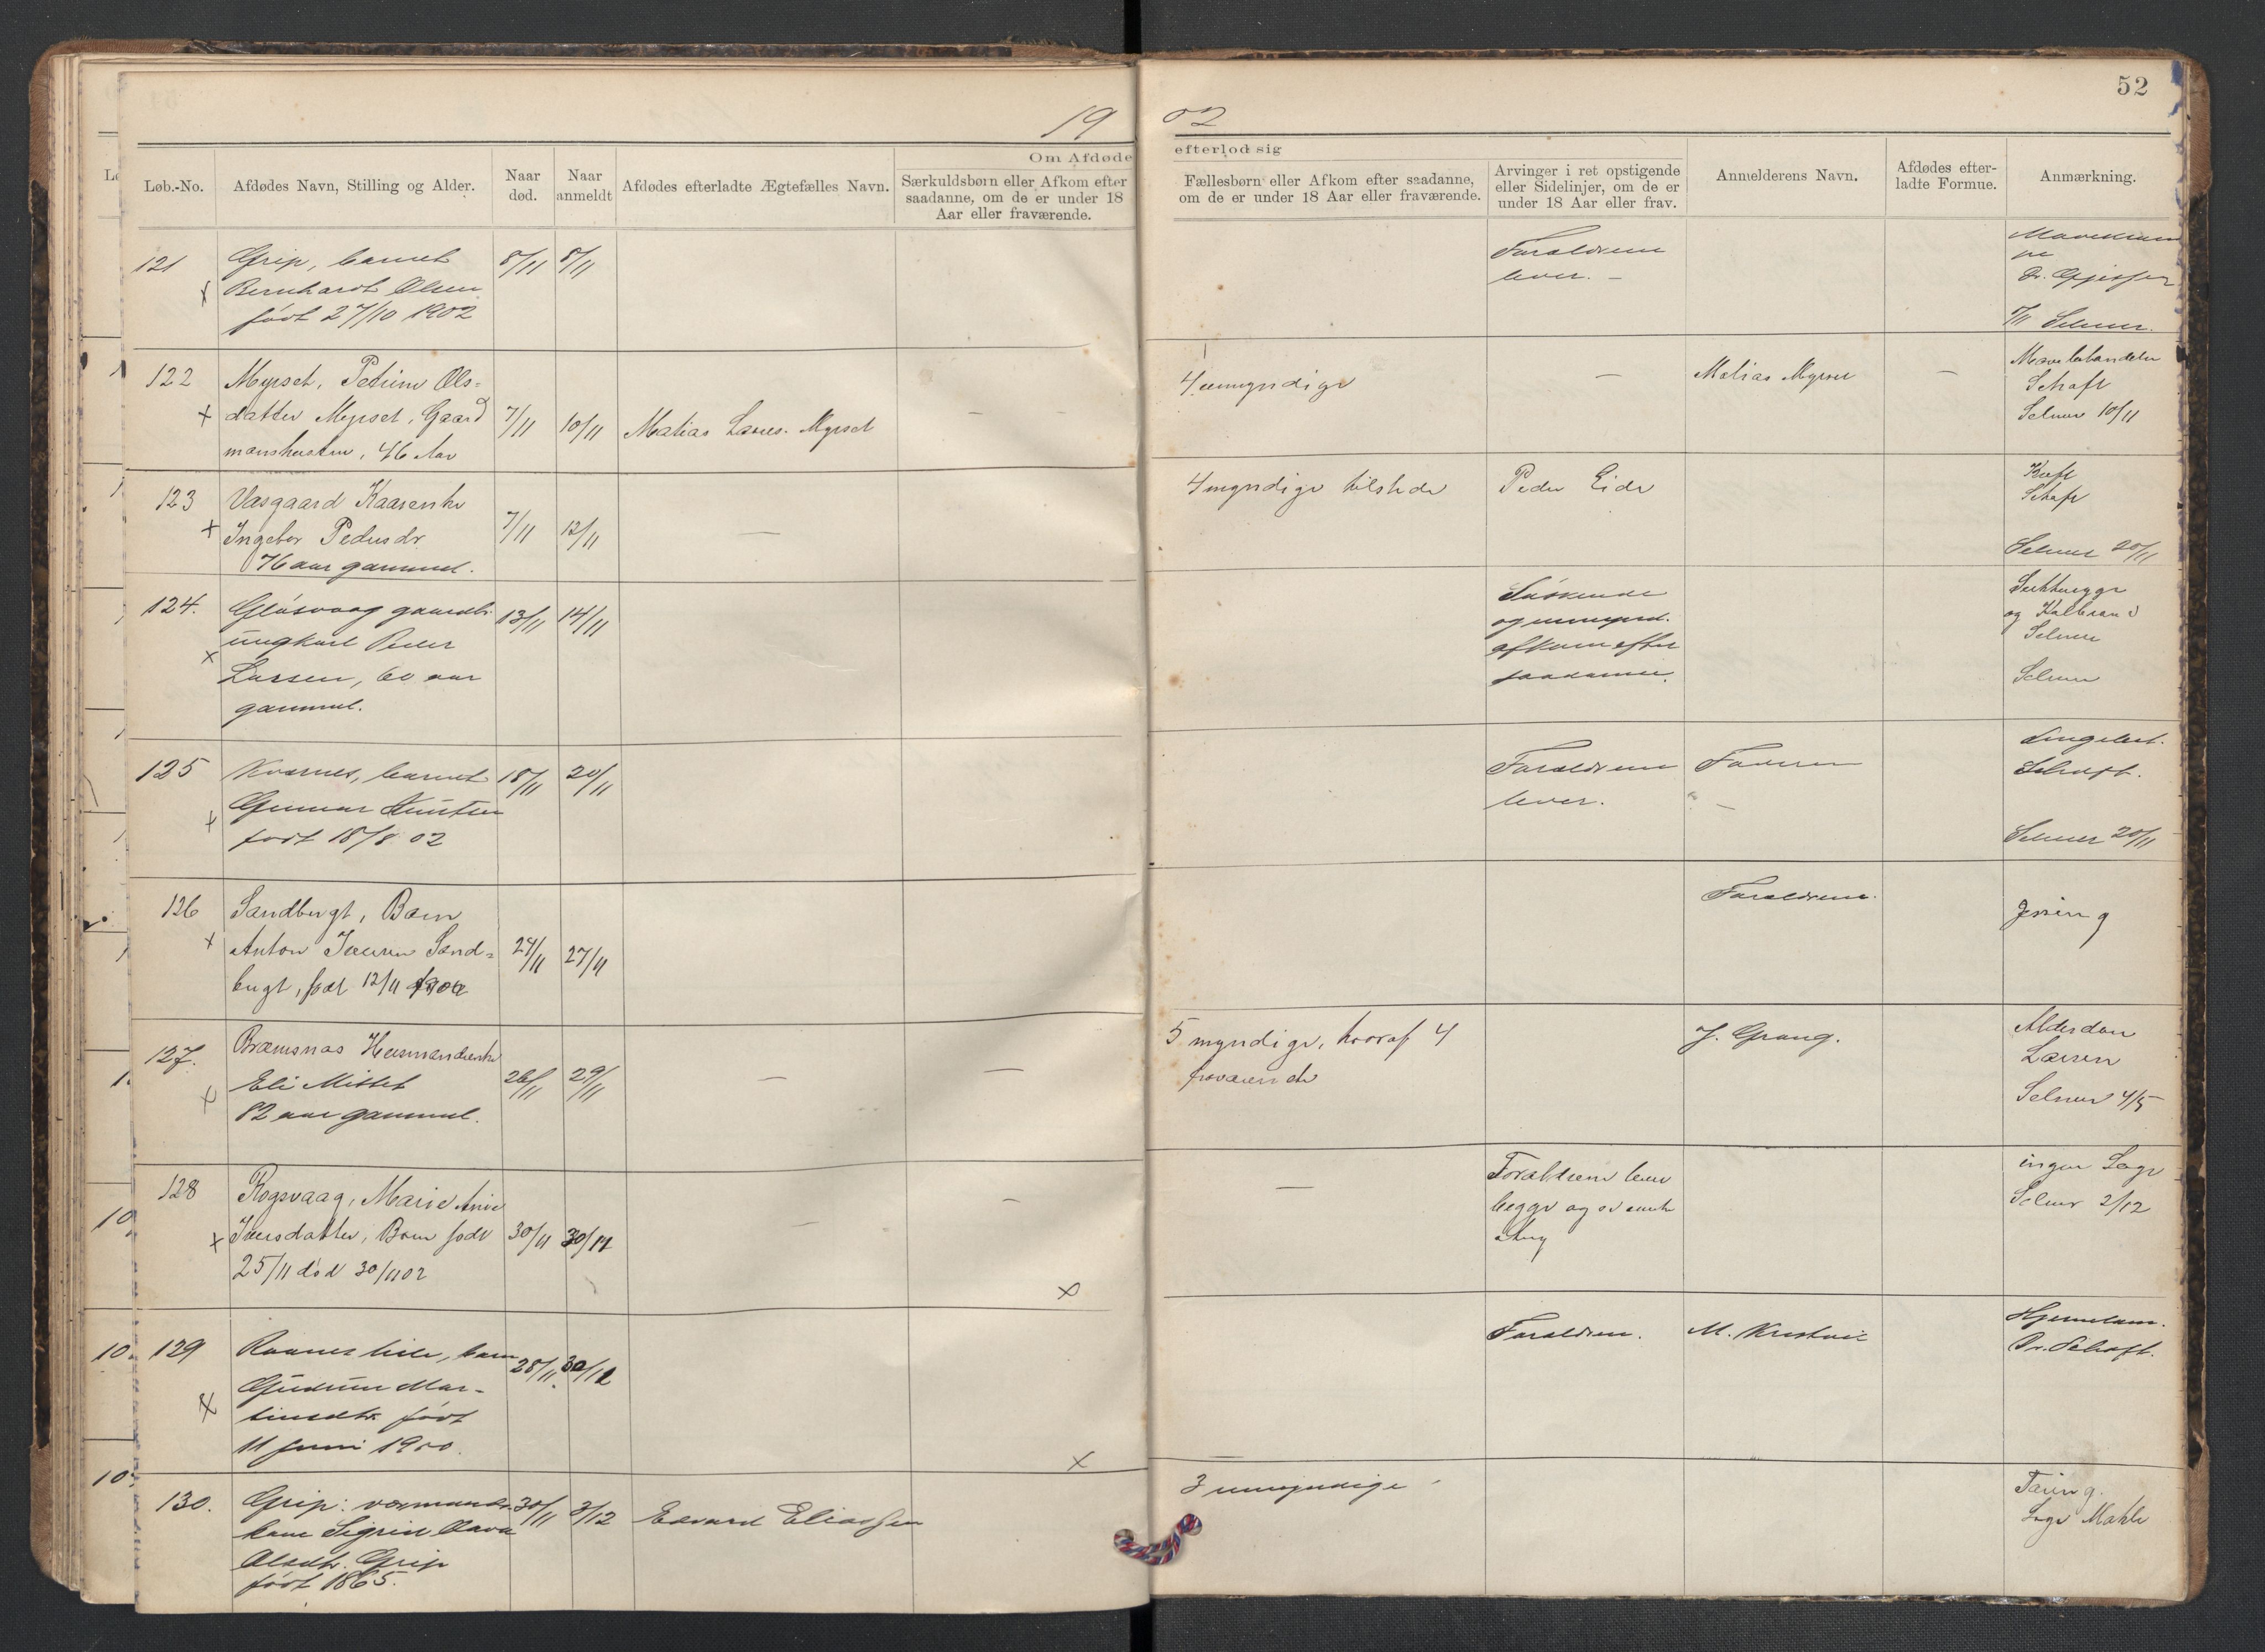 52
19 02
Om Afdøde efterlod sig
Løb.-No.
Afdødes Navn, Stilling og Alder.
Naar død.
Naar anmeldt
Afdødes efterladte Ægtefælles Navn.
Særkuldsbørn eller Afkom efter
saadanne, om de er under 18
Aar eller fraværende.
Fællesbørn eller Afkom efter saadanne,
om de er under 18 Aar eller fraværende.
Arvinger i ret opstigende
eller Sidelinjer, om de er
under 18 Aar eller frav.
Anmelderens Navn.
Afdødes efter-
ladte Formue.
Anmærkning.
121
Grip, barnet
Bernhardt Olsen
født 27/10 1902
8/11
8/11
Forældrene
lever. –
7/11 Selmer.
122
Myrset, Petrine Ols-
datter Myrset, Gaard
manshustru, 46 Aar
7/11
10/11
Matias Lares. Myrset
4 umyndige
Matias Myrset
Schaft
Selmer 10/11
123
Vasgaard Kaarenke
Ingebor Pedersdr.
76 aar gammel.
7/11
12/11
4 myndige tilstede
Peder Eide
Kræft
Schaft
Selmer 20/11
124.
Gløsvaag gaardbr.
ungkarl Peder
Larsen, 60 aar
gammel.
13/11
14/11
Søskende
og umynd.
afkom efter
saadanne.
og Kalbrand
Selmer
Selmer
125
Kvernes, barnet
Gunnar Knutsen
født 18/8 02
18/11
20/11
Forældrene
lever.
Faderen
Lungebet.
Schaft.
Selmer 20/11
126
Sandbugt, Barn
Anton Iversen Sand-
bugt, født 12/11 1902
24/11
27/11
Forældrene.
Jessing
127.
Bremsnæs Husmandsenke
Eli Mittet
82 aar gammel.
26/11
29/11
5 myndige, hvoraf 4
fraværende
J. Grang.
Alderdom
Larsen
Selmer 4/5
128
Rogsvaag, Marie Anne
Iversdatter, Barn født
25/11 død 30/11 02
30/11
30/11
Forældrene lever
begge
ingen Læge
Selmer 2/12
129
Ramneslien, barn
Gudrun Mar-
tinsdtr. født
11 juni 1900.
28/11
30/12
Forældren.
M. Kristvik
Hjernebetn.
Dr. Schaft.
130.
Grip: vormands
kone Sigrid Olava
Olsdtr. Grip
født 1865.
30/11
3/12
Edvard Eliassen
3 umyndige
Tæring.
Læge Mahle